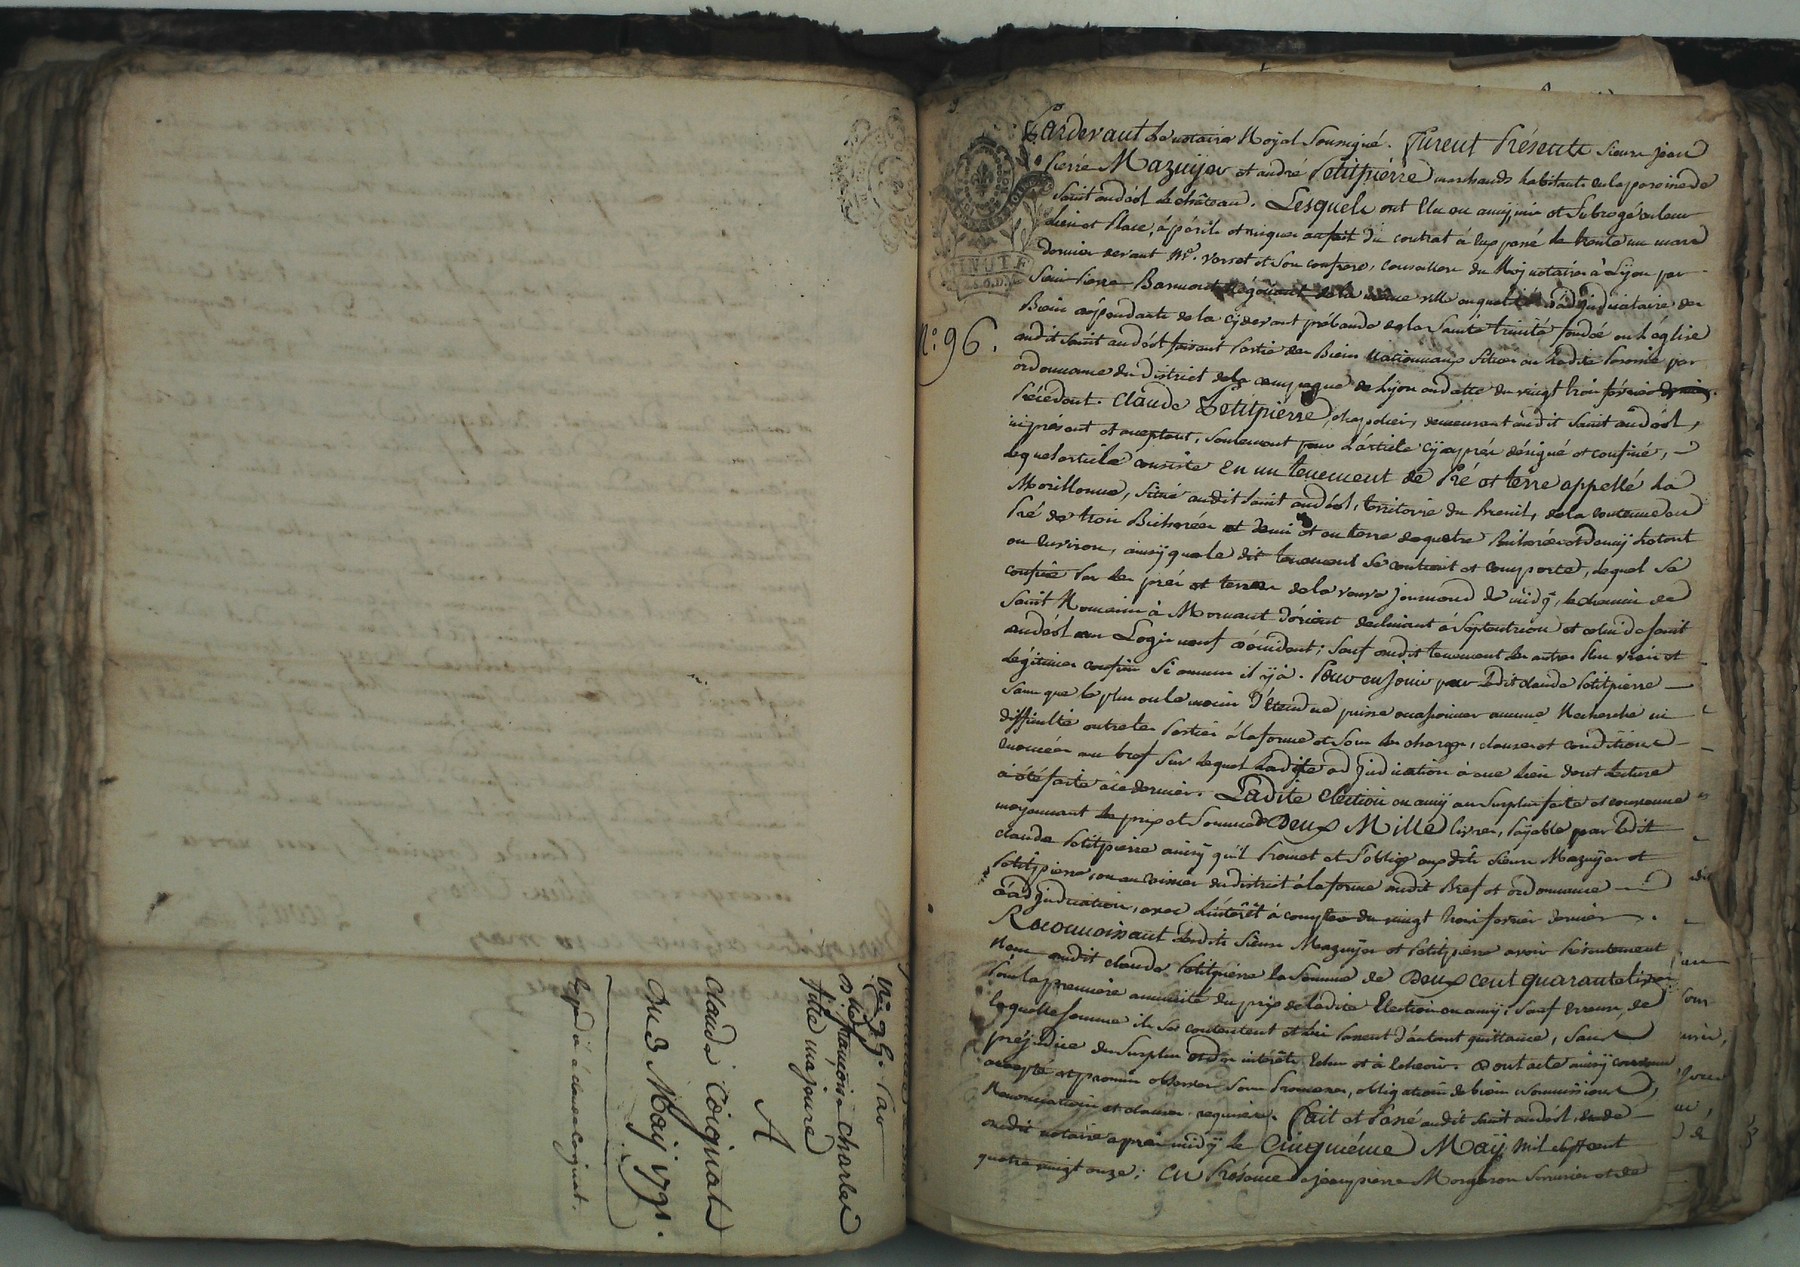 Pardevant Le notaire Royal Soussigné. Furent Présents sieurs jean
Pierre Mazuyer et andré Petitpierre marchands habitants en la paroisse de
Saint andéol le château. Lesquels ont Elu en amy, mis et Subrogé en leur
Lieu et Place, à périls et risques au fait du contrat à eux passé le trente un mars
dernier devant Me. Verset et Son confrere, conseillers du Roy notaires à Lyon par
Sieur Pierre Négotiant de la même ville en qualité d'adjudicataire des
Biens dépendants de la cydevant prébande de la Sainte trinité fondée en L'église
dudit Saint andéol faisant Partie des Biens Nationnaux Situés en Ladite Paroisse par
ordonnance du District de la campagne de Lyon en datte du vingt trois février
Précédent. Claude Petitpierre, chapelier, demeurant audit Saint andéol,
ici présent et acceptant, Seulement pour L'article cy après désigné et confiné,
Lequel article consiste En un tenement de Pré et terre appellé La
Morillonne, Situé audit Saint andéol, territoire du Breuil, de la contenue en
Pré de trois Bicherées et demi et en terre de quatre Bicherées et demy Le tout
ou Environ, ainsy que le dit tenement Se contient et comporte, Lequel Se
confine Par Les prés et terres de la veuve Jeumond de midy, le chemin de
Saint Romain à Mornant d'orient declinant à Septentrion et celui de Saint
andéol au Logis neuf d'occident; Sauf audit tenement Les autres Plus vrais et
Légitimes confins Si aucuns il y a. Pour en Jouir par Ledit claude Petitpierre
Sans que le plus ou le moins d'Etendue puisse occasionner aucune Recherche ni
difficulté entre les Parties à la forme et Sous les charges, clauses et conditions
énoncées au bref Sur Lequel Ladite adjudication à eue Lieu dont Lecture
à été faite à ce dernier. Ladite Election en amy au Surplus faite et convenue
moyennant le prix et Somme de Deux Mille livres, Payable par Ledit
claude Petitpierre ainsy qu'il Promet et S'oblige auxdits Sieurs Mazuyer et
Petitpierre, ou au caissier du district à la forme dudit Bref et ordonnance
d'adjudication, avec L'intérêt à compter du vingt trois fevrier dernier.
Reconnoissant Lesdits Sieurs Mazuyer et Petitpierre avoir Présentement
Reçu dudit claude Petitpierre la Somme de Deux cent quarante Livres
Pour la premiere annuité du prix de Ladite Election en amy; Sauf Erreur, de
laquelle Somme ils Se contentent et Lui Passent d'autant quittance, Sans
préjudice du Surplus et des intérêts Echus et à Echeoir. Dont acte ainsy convenu
accepté et promis observer Sous Promesses, obligation de biens Soumissions,
Renonciations et clauses requises. Fait et Passé audit Saint andéol, Etude
dudit notaire après midy le Cinquiéme May mil Sept cent
quatre vingt onze; En Présence de jean pierre Morgeron Serrurier et de
N°. 96.
MINUTE
N° 95. Par
dlle françoise Charles
fille majeure
A
Claude Coignat
Du 3 May 1791.
Expédié à claude Coignat.